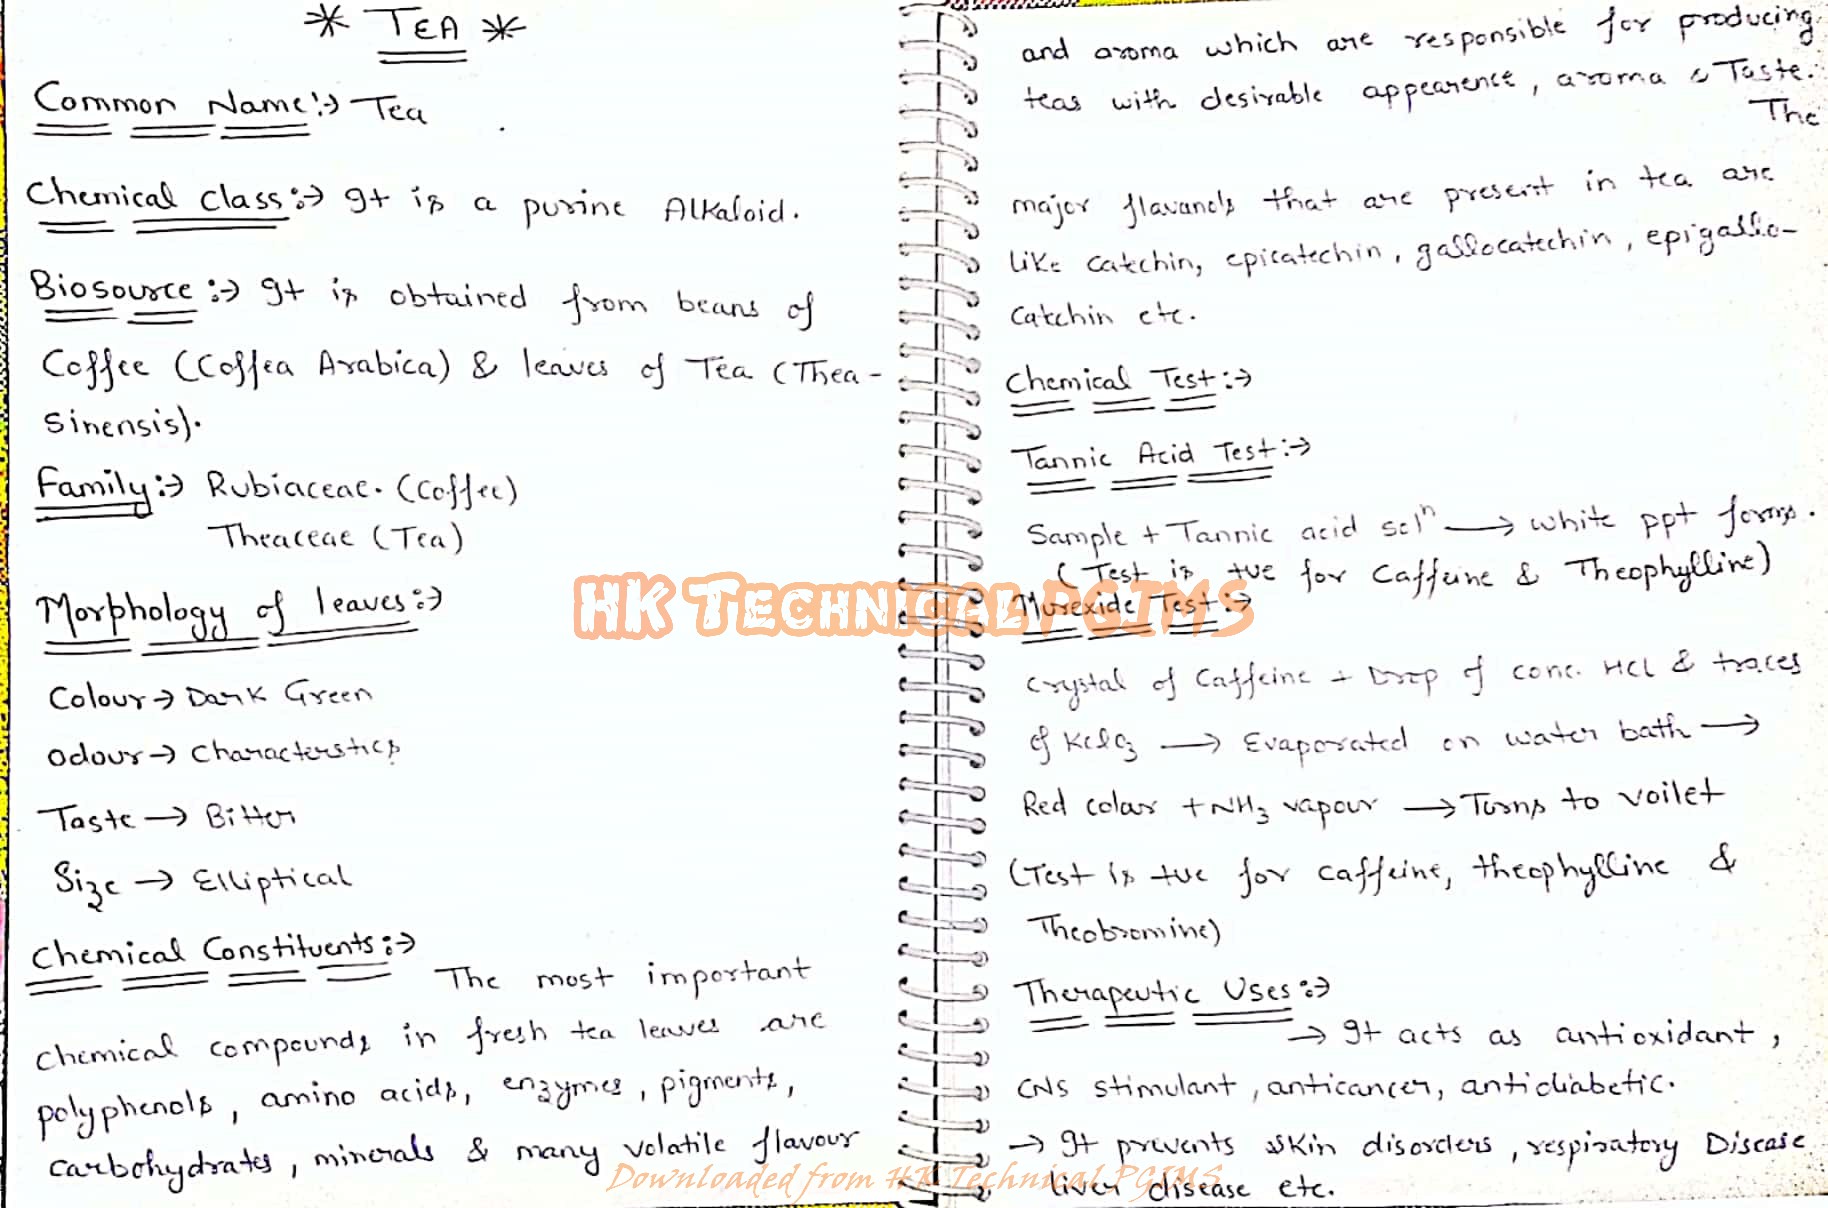 * TEA *
Common Name:→ Tea
Chemical Class:→ It is a purine Alkaloid.
Biosource:→ It is obtained from beans of
Coffee (Coffea Arabica) & leaves of Tea (Thea-
Sinensis).
Family:→ Rubiaceae. (Coffee)
Theaceae (Tea)
Morphology of leaves:→
Colour→ Dark Green
Odour→ Characterstics
Taste→ Bitter
Size→ Elliptical
Chemical Constituents:→
The most important
chemical compounds in fresh tea leaves are
polyphenols, amino acids, enzymes, pigments,
carbohydrates, minerals & many volatile flavour
and aroma which are responsible for producing
teas with desirable appearence, aroma & Taste.
The
major flavanols that are present in tea are
like catechin, epicatechin, gallocatechin, epigallo-
catechin etc.
Chemical Test:→
Tannic Acid Test:→
Sample + Tannic acid solⁿ → white ppt forms.
(Test is +ve for Caffeine & Theophylline)
Murexide Test:→
Crystal of Caffeine + Drop of conc. HCl & traces
of KClO3 → Evaporated on water bath →
Red colour + NH3 vapour → Turns to voilet
(Test is +ve for caffeine, theophylline &
Theobromine)
Therapeutic Uses:→
→ It acts as antioxidant,
CNS stimulant, anticancer, antidiabetic.
→ It prevents skin disorders, respiratory Disease
liver disease etc.
HK TECHNICAL PGIMS
Downloaded from HK Technical PGIMS